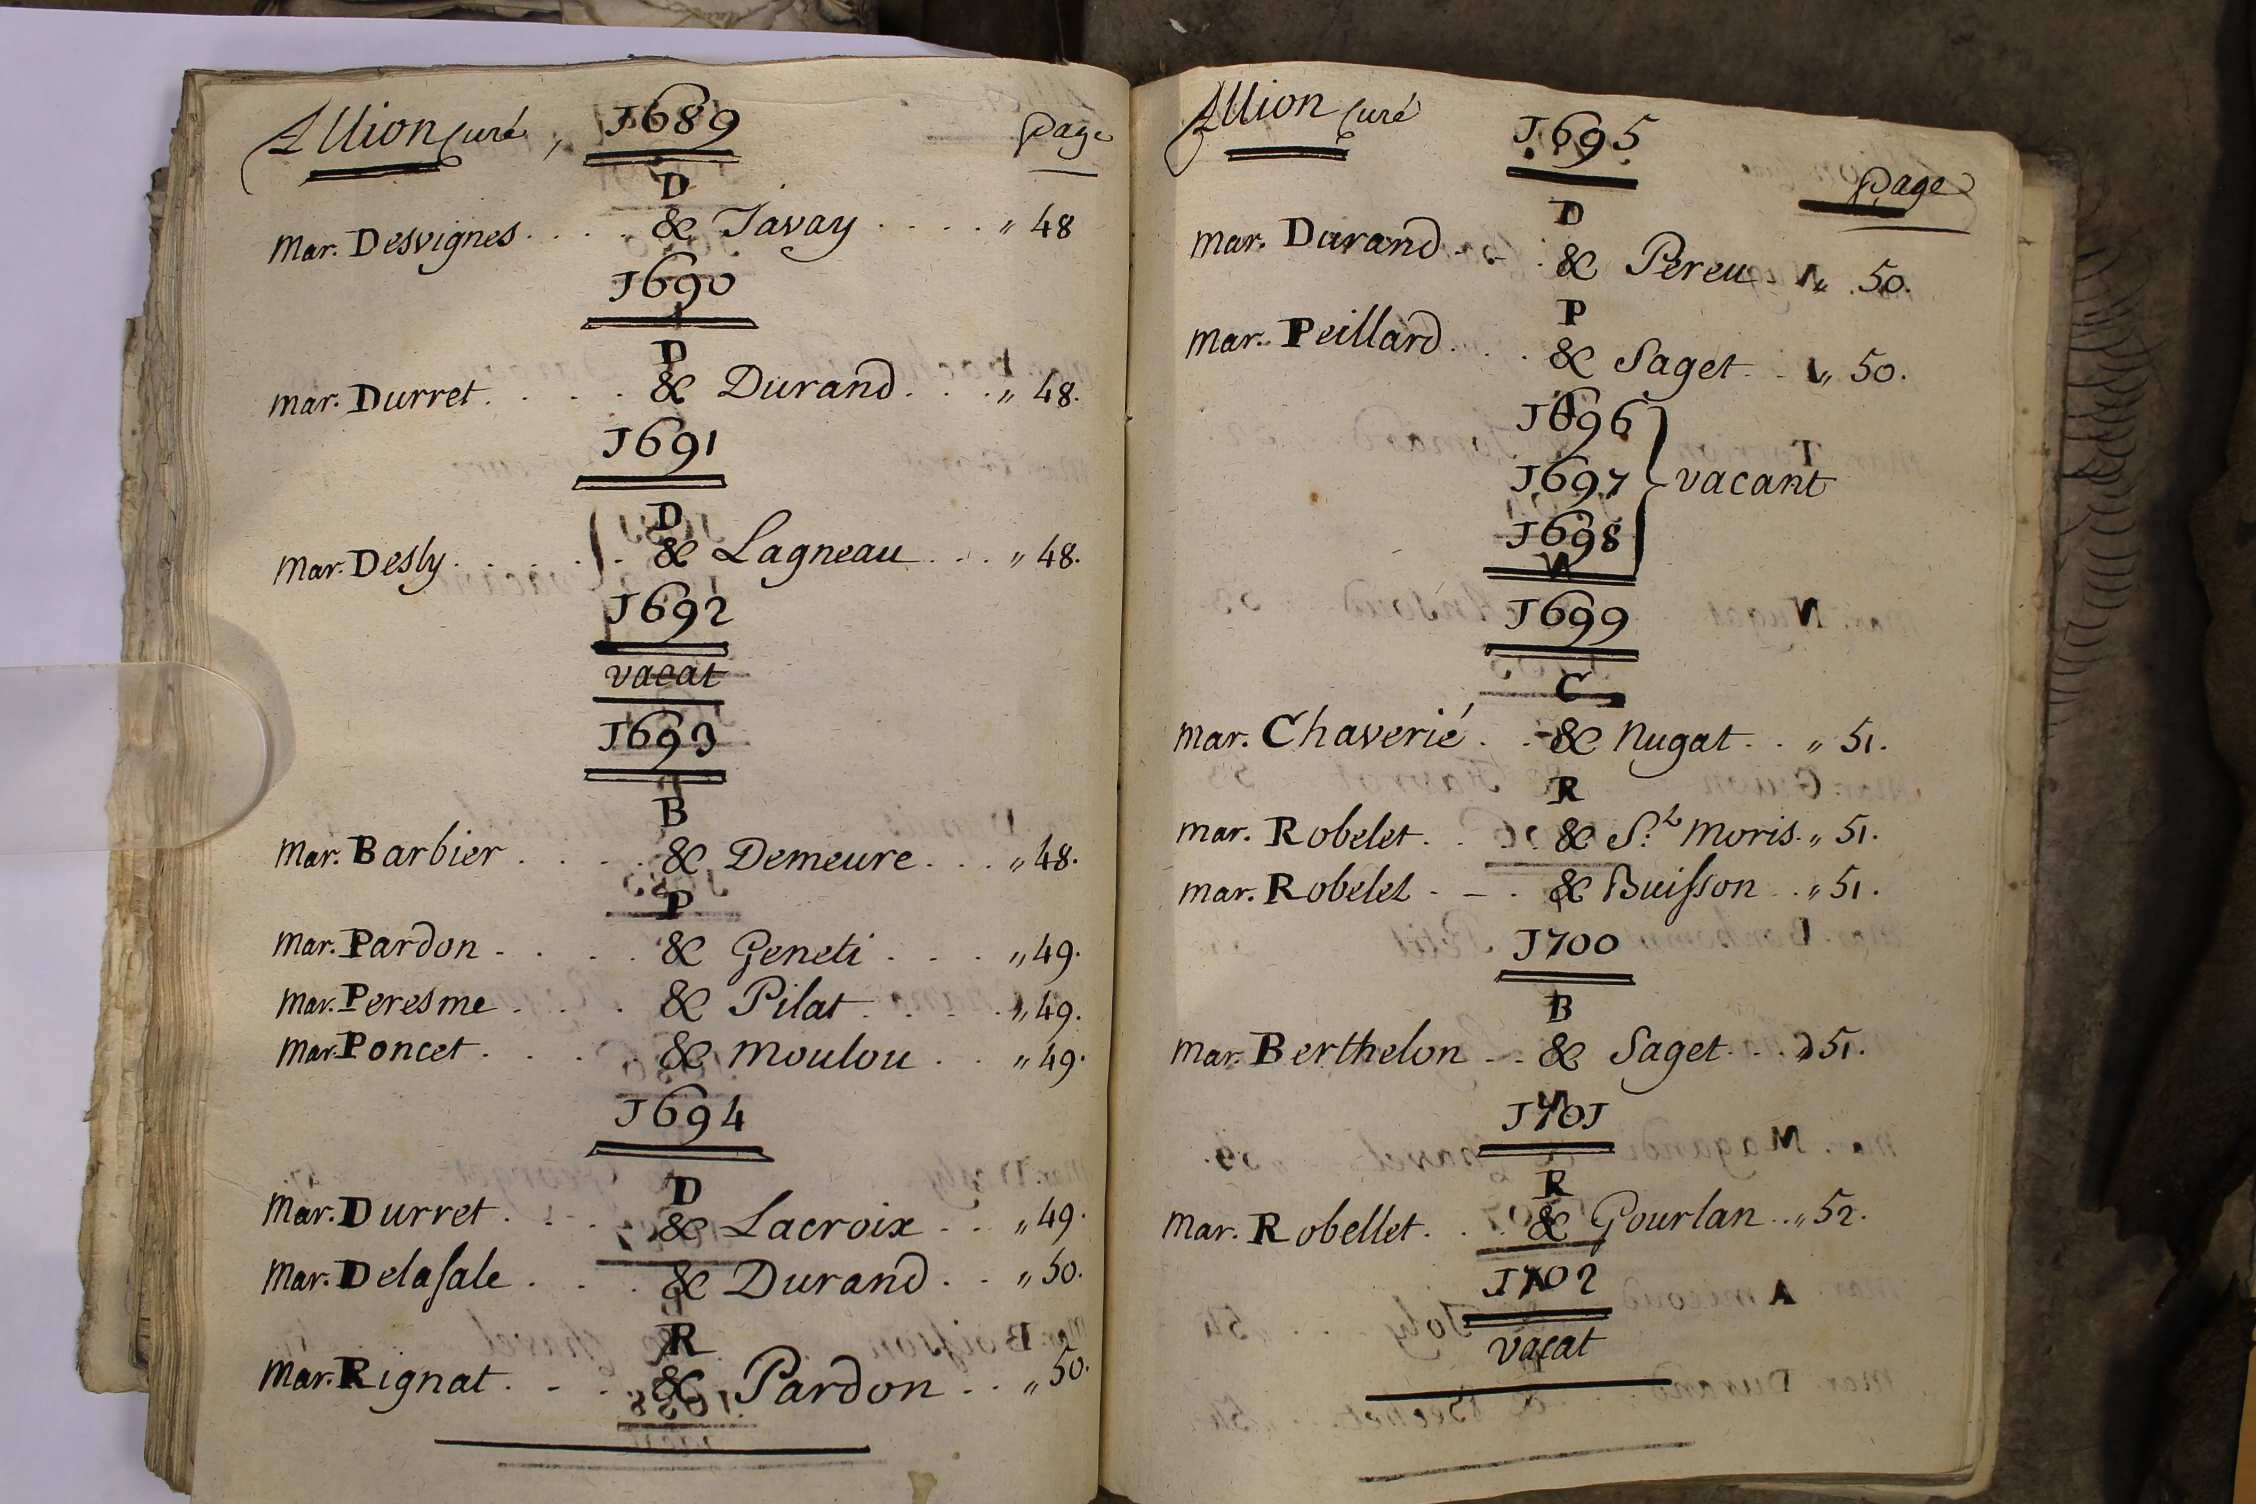 Allion Curé, 1689 page
D
mar. Desvignes . . . . & Javay . . . . „ 48
1690
D
mar. Durret . . . . & Durand . . . „ 48.
1691
D
mar. Desly . . . . & Lagneau . . . „ 48.
1692
vacat
1693
B
mar. Barbier . . . . & Demeure . . . „ 48.
P
mar. Pardon . . . . & Geneti . . . „ 49.
mar. Peresme . . . . & Pilat . . . . „ 49.
mar. Poncet . . . . & Moulou . . „ 49.
1694
D
mar. Durret . . . . & Lacroix . . „ 49.
mar. Delasale . . . & Durand . . „ 50.
R
mar. Rignat . . . . & Pardon . . „ 50.
Allion Curé
1695
page
D
mar. Durand . . . & Pereu . „ 50.
P
mar. Peillard . . . & Saget . . „ 50.
1696
1697 vacant
1698
1699
C
mar. Chaverié . . & Nugat . . „ 51.
R
mar. Robelet . . . & S.t Moris . „ 51.
mar. Robelet . . . & Buisson . „ 51.
1700
B
mar. Berthelon . . & Saget . . . „ 51.
1701
R
mar. Robellet . . . & Gourlan . . „ 52.
1702
vacat